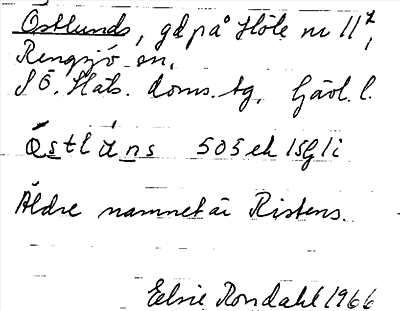 Östlunds, gd på Höle nr 11²,
Rengsjö sn,
S Ö. Häls. doms. tg, Gävl. l.
Östlúns 505 ek
Äldre namnet är Ristens.
Elsie Rondahl 1966